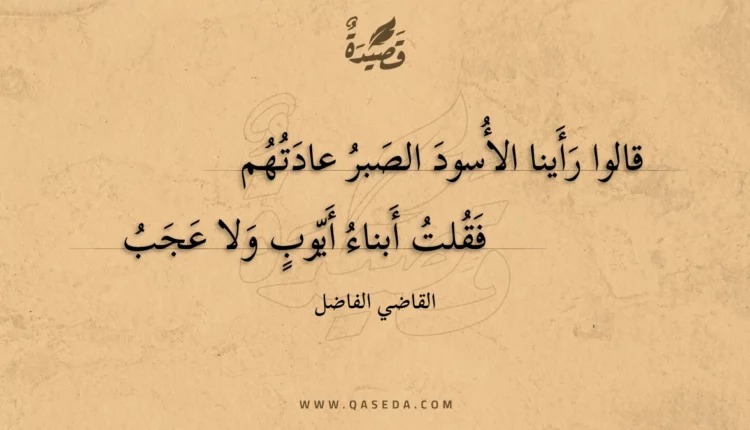 قَصِيْدَةٌ
قالوا رَأَينا الأُسودَ الصَبرُ عادَتُهُم
فَقُلتُ أَبناءُ أَيّوبٍ وَلا عَجَبُ
القاضي الفاضل
WWW.QASEDA.COM